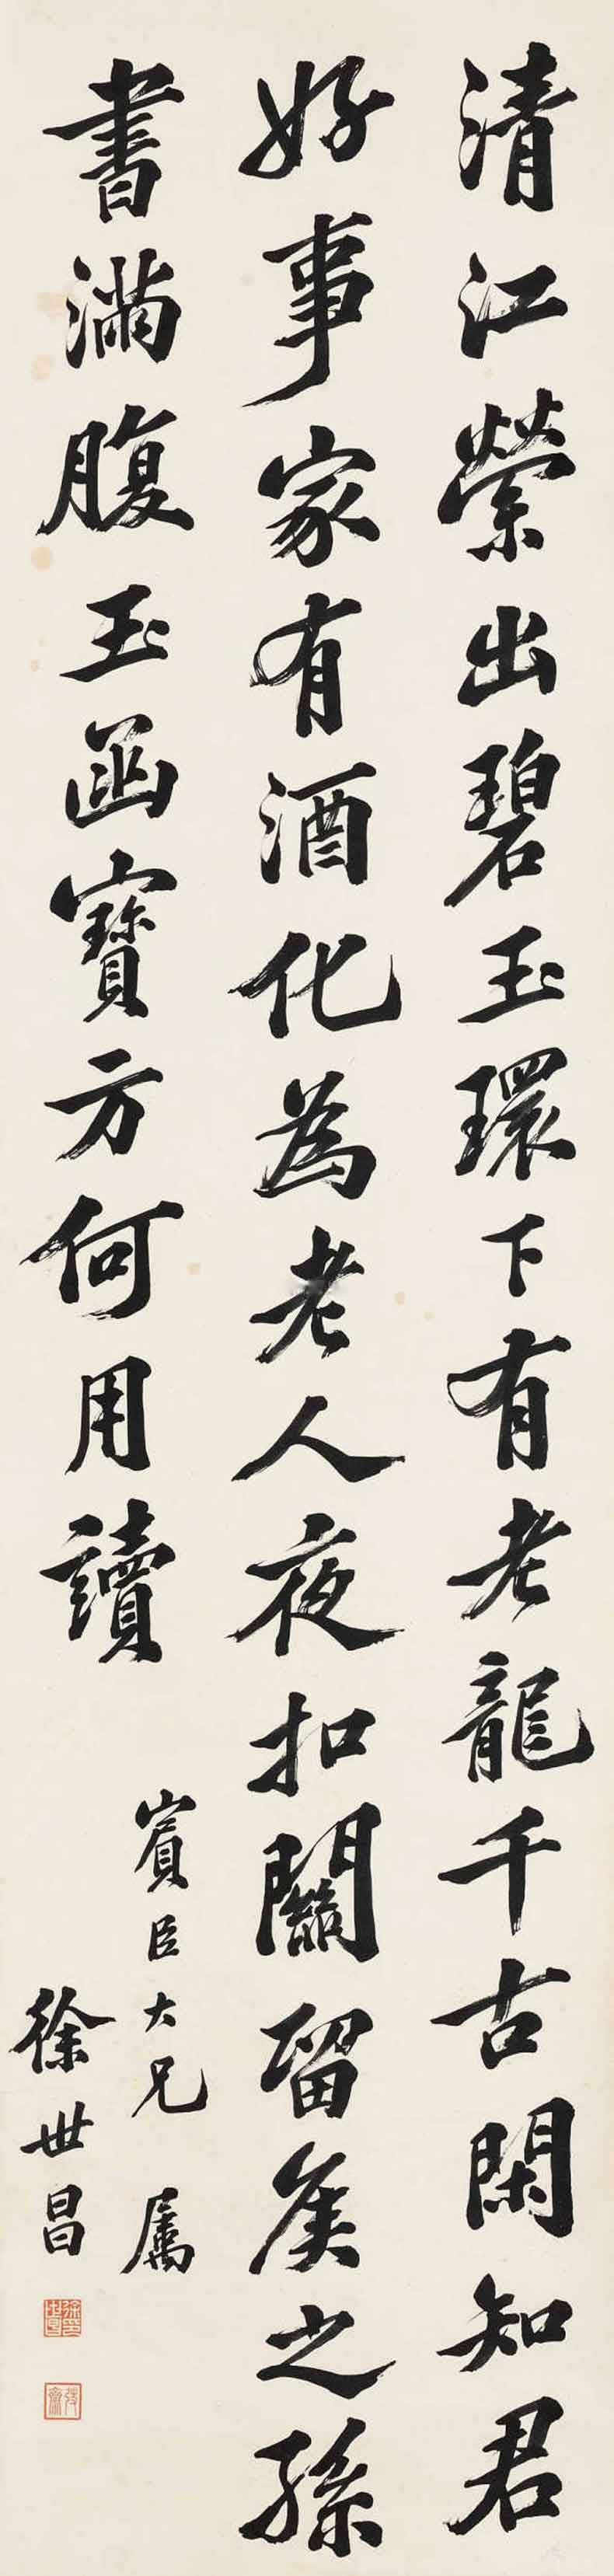 清江縈出碧玉環下有老龍千古閑知君
好事家有酒化為老人夜扣關留矦之孫
書滿腹玉函寶方何用讀
賓臣大兄 屬
徐世昌